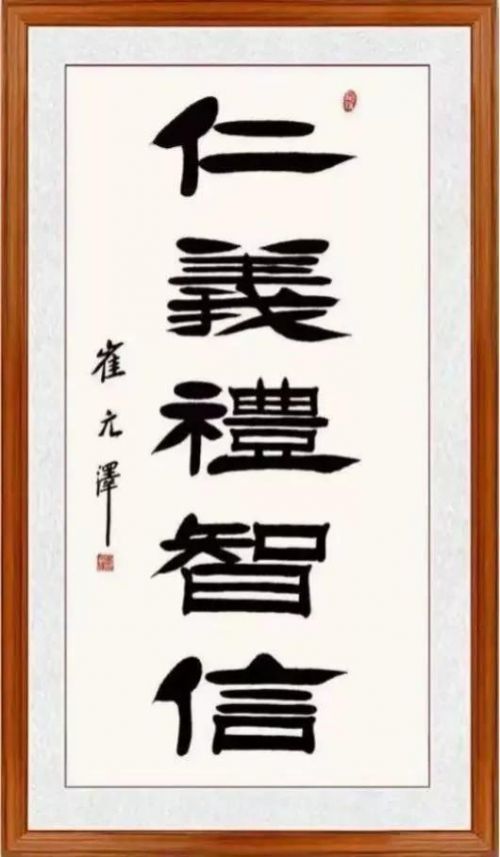 仁義禮智信
崔元澤